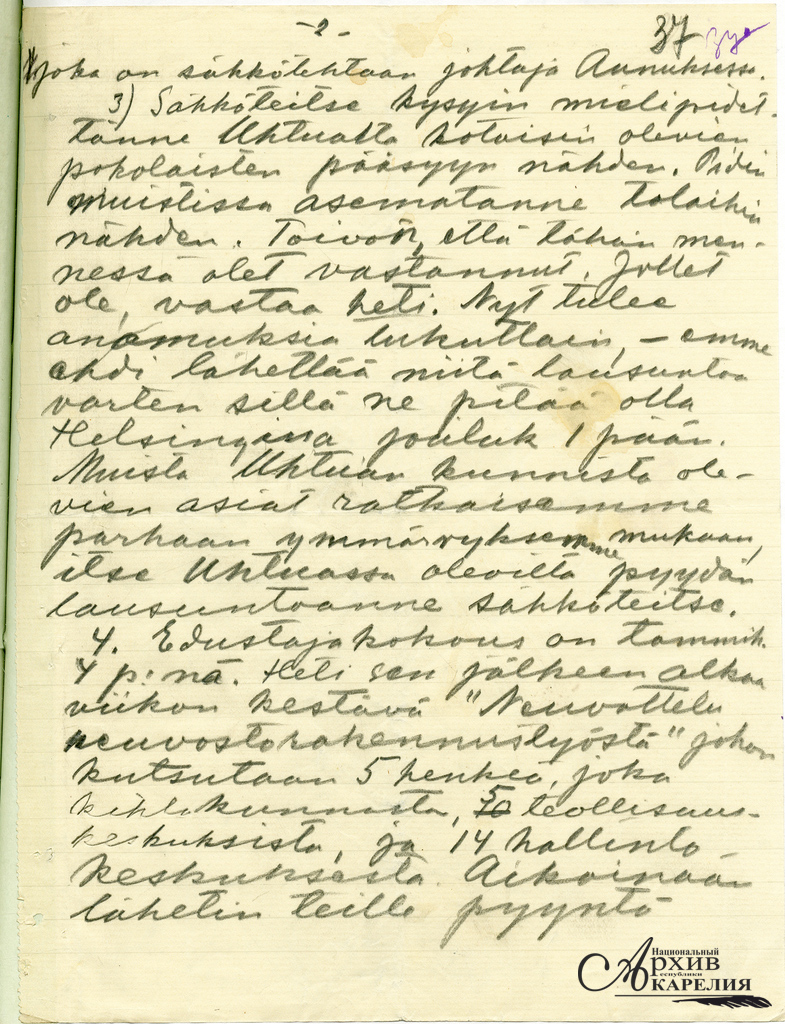 -2-
37
joka on sähkötehtaan johtaja Aunuksessa.
3) Sähköteitse kysyin mielipidet-
tänne Uhtualta kotoisin olevien
pakolaisten pääsyyn nähden. Pidin
muistissa asematanne toloihin
nähden. Toivon, että tähän men-
nessä olet vastannut. Jollet
ole, vastaa heti. Nyt tulee
anomuksia lukuttain, - emme
ehdi lähettää niitä lausuntoa
varten sillä ne pitää olla
Helsingissä jouluk 1 pään.
Muista Uhtuan kunnista ole-
vien asiat ratkaisemme
parhaan ymmärryksemme mukaan,
itse Uhtuassa olevilta pyydän
lausuntoanne sähköteitse.
4. Edustajakokous on tammik.
4 p:nä. Heti sen jälkeen alkaa
viikon kestävä "Neuvottelu
neuvostorakennustyöstä" johon
kutsutaan 5 henkeä, joka
kihlakunnasta, 5 teollisuus-
keskuksista, ja 14 hallinto
keskuksesta. Aikoinaan
lähetin teille pyyntö
Национальный
Архив
республики
Карелия